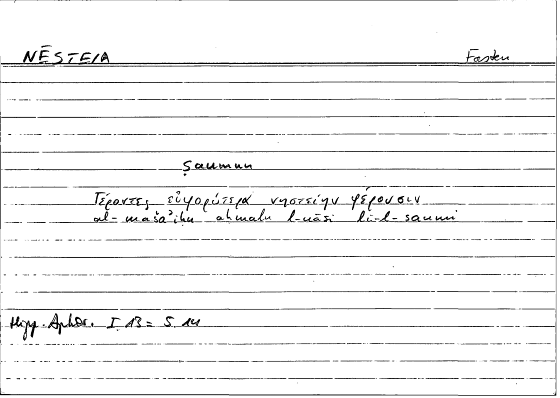 NĒSTEIA Fasten
ṣaumun
Γέροντες εὐφορώτατα νηστείην φέρουσιν
al-mašāʾiḫu aḥmalu l-nāsi li-l-ṣaumi
Hipp. Aphor. I 13 = 5 14